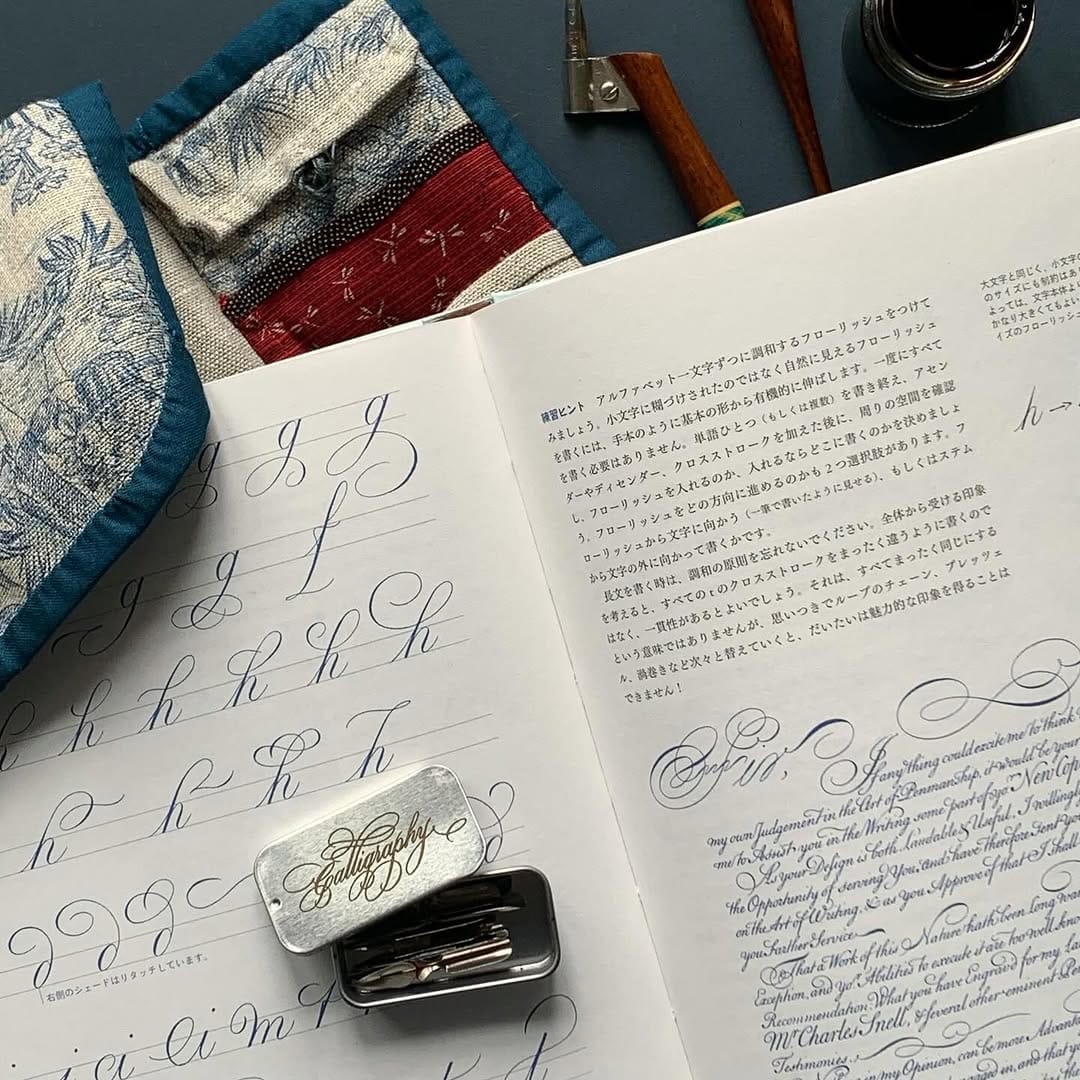 g g g
g g f
h h h h h
h h h h
右側のシェードはリタッチしています。
a a m
Calligraphy
練習ヒント アルファベット一文字ずつに調和するフローリッシュをつけて
みましょう。小文字に糊づけされたのではなく自然に見えるフローリッシュ
を書くには、手本のように基本の形から有機的に伸ばします。一度にすべて
を書く必要はありません。単語ひとつ（もしくは複数）を書き終え、アセン
ダーやディセンダー、クロスストロークを加えた後に、周りの空間を確認
し、フローリッシュを入れるのか、入れるならどこに書くのかを決めましょ
う。フローリッシュをどの方向に進めるのかも2つ選択肢があります。フ
ローリッシュから文字に向かう（一筆で書いたように見せる）、もしくはステム
から文字の外に向かって書くかです。
長文を書く時は、調和の原則を忘れないでください。全体から受ける印象
を考えると、すべてのtのクロスストロークをまったく違うように書くので
はなく、一貫性があるとよいでしょう。それは、すべてまったく同じにする
という意味ではありませんが、思いつきでループのチェーン、プレッツェ
ル、渦巻きなど次々と替えていくと、だいたいは魅力的な印象を得ることは
できません！
大文字と同じく、小文字の
のサイズにも制約はあ
よっては、文字本体よ
かなり大きくてもよい
イズのフローリッシュ
h →
If any thing could excite me to think
my own Judgement in the Art of Penmanship, it would be your
me to Assist you in the Writing some part of yor New Cop
As your Design is both Laudable & Useful, I willingly
the Opportunity of serving You, and have therefore sent you
on the Art of Writing, & as you Approve of that I shall
you farther Service
That a Work of this Nature hath been long wan
Exception, and yor Abilities to execute it are too well know
Recommendation: What you have Engrav'd for my la
Mr Charles Snell, & several other eminent Pen
Testimonies.
in my Opinion, can be more Advanta
and that yo